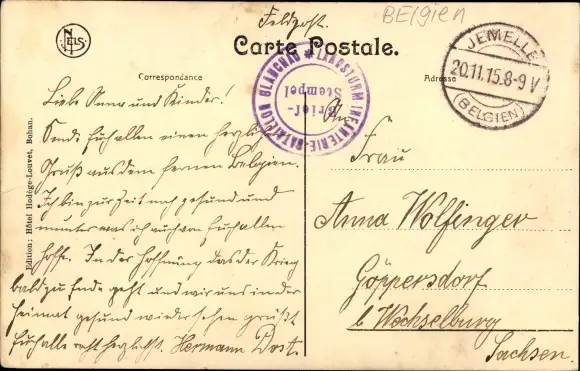 Feldpost.
BElgien
NELS
Carte Postale.
Correspondance
Adresse
JEMELLE
20.11.15.8-9 V
(BELGIEN)
LANDSTURM INFANTERIE-BATAILLON GLAUCHAU
Brief-
Stempel
Liebe Anna und Kinder!
Sende Euch allen einen herzlichen
Gruß aus dem fernen Belgien.
Ich bin zur Zeit noch gesund und
munter was ich auch von Euch allen
hoffe. In der Hoffnung das der Krieg
bald zu Ende geht und wir uns in der
Heimat gesund wiedersehen grüßt
Euch alle recht herzlichst. Hermann Dost.
An
Frau
Anna Wolfinger
Göppersdorf
b. Wechselburg
Sachsen.
Edition: Hôtel Hodège-Louvet, Bohan.